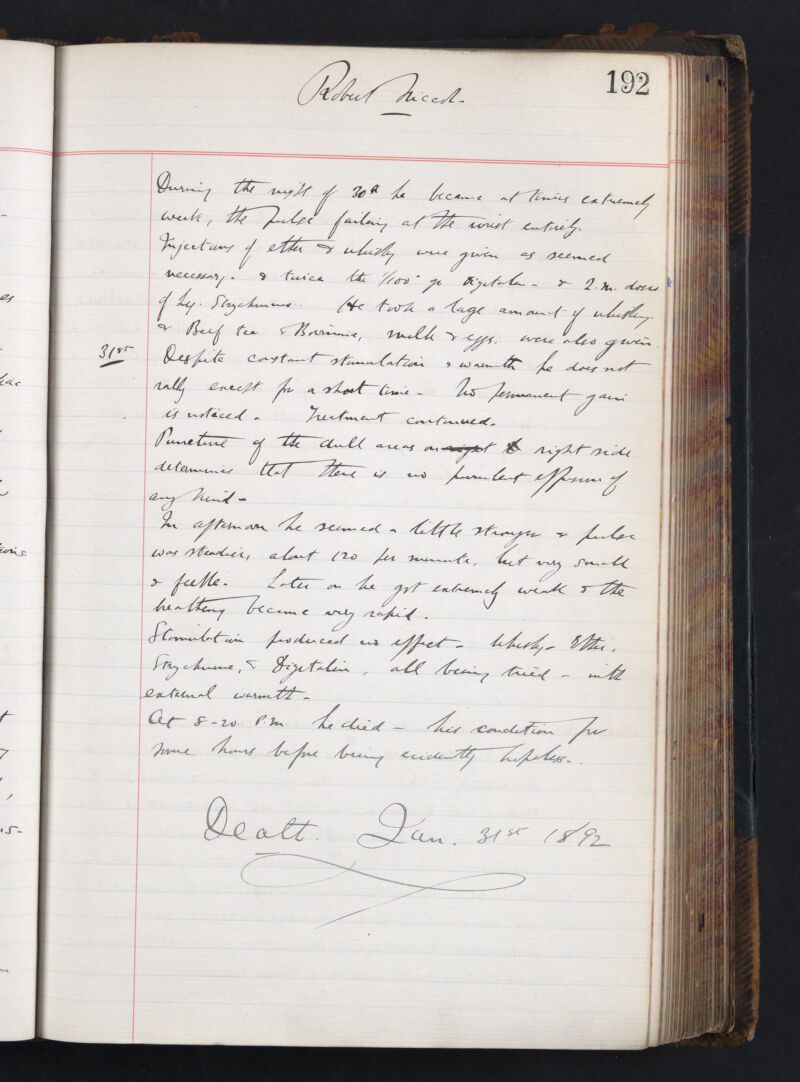 192
Robert Niccol.
During the night of 30th he became at times extremely
weak, the pulse failing at the wrist entirely.
Injections of ether & whisky were given as seemed
necessary. & twice the 1/100 gr Digitalin - & 2.m. doses
of Liq. Strychnine. He took a large amount of whisky.
& Beef tea & Bovinine, milk & eggs. were also given.
31st Despite constant stimulation & warmth he does not
rally except for a short time. No permanent gain
is noticed. Treatment continued.
Puncture of the dull areas on right side
determines that there is no purulent effusion of
any kind -
In afternoon he seemed a little stronger & pulse
was steadier, about 120 per minute, but very small
& feeble. Later on he got extremely weak & the
breathing became very rapid.
Stimulation produced no effect - Whisky - Ether,
Strychnine, & Digitalin, all being tried - with
external warmth -
At 8-20 P.m. he died - his condition for
some hours before being evidently hopeless.
Death. Jan. 31st 1892